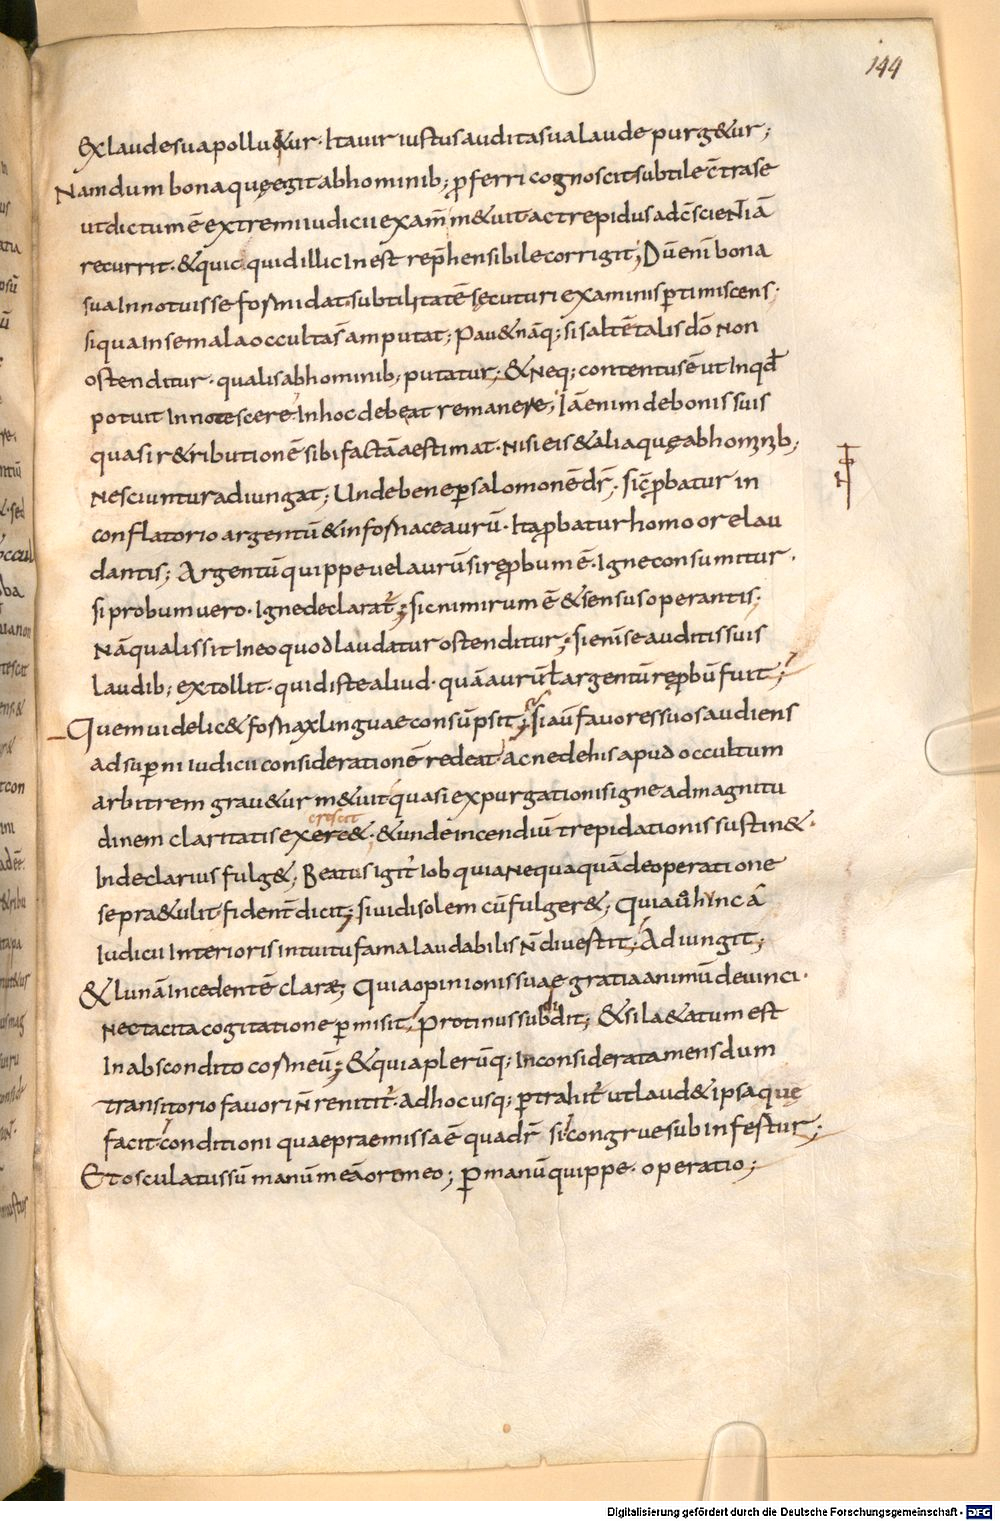 144
Ex laude sua pollu&ur· Ita uir iustus audita sua laude purg&ur;
Nam dum bona quę egit ab hominib; p̄ferri cognoscit subtile c̄tra se
ut dictum ē extremi iudicii exam̄ m&uit· ac trepidus ad c̄scientiā
recurrit· & quic quid illic Inest rep̄hensibile corrigit; Dū eni bona
sua Innotuisse formidat· subtilitatē secuturi examinis ꝑtimiscens·
si qua In se mala occulta s̄ amputat; Pau& nāq; si saltē talis dō Non
ostenditur· qualis ab hominib; putatur; & Neq; contentus ē ut In qd̄
potuit Innotescere· In hoc debeat remanere; Iā enim de bonis suis
quasi r&ributionē sibi factā aestimat· Nisi eis & alia quę ab hominib;
Nesciuntur adiungat; Unde bene ꝑ salomonē dr̄· sic ꝓbatur in
conflatorio argentū & in fornace aurū· Ita ꝓbatur homo ore lau
dantis; Argentū quippe uel aurū si reꝓbum ē· Igne consumitur·
si probum uero· Igne declarat̄; sic nimirum ē & sensus operantis·
Nā qualis sit In eo quod laudatur ostenditur; si eni se auditis suis
laudib; extollit· quid iste aliud· quā aurū ł argentū reꝓbū fuit;
Quem uidelic& fornax linguae consūpsit; si aū fauores suos audiens
ad suꝑni iudicii considerationē redeat· Ac ne de his apud occultum
arbitrem grau&ur m&uit· quasi ex purgationis igne ad magnitu
crescit
dinem claritatis exere&· & unde incendiū trepidationis sustin&·
Inde clarius fulg&; Beatus igit̄ Iob quia Nequaquā de operatione
se pra&ulit· fident̄ dicit; si uidi solem cū fulger&; Quia
Iudicii Interioris intuitu fama laudabilis n̄ diuestit; Adiungit;
& lunā Incedentē clarae; Quia opinionis suae gratia animū deuinci·
Nec tacita cogitatione ꝑmisit; Protinus subdit; & si la&atum est
In abscondito cor meū; & quia plerūq; Inconsiderata mens dum
transitorio fauori n̄ renitit̄· Ad hoc usq; ꝑtrahit̄ ut laud& ipsa quę
facit· conditioni quae praemissa ē quadr̄ si congrue subinfertur;
Et osculatus sū manū meā ore meo; ꝑ manū quippe· operatio;
Digitalisierung gefördert durch die Deutsche Forschungsgemeinschaft - DFG